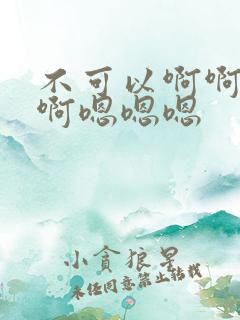 不可以啊啊
啊嗯嗯嗯
小贪狼星
未经同意禁止转载